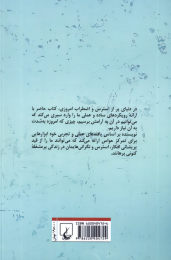 در دنیای پر از استرس و اضطراب امروزی، کتاب حاضر با
ارائهٔ رویکردهای ساده و عملی ما را وارد مسیری می‌کند که
می‌توانیم در آن به آرامش برسیم، چیزی که امروزه به‌شدت
به آن نیاز داریم.
نویسنده بر اساس یافته‌های عملی و تجربی خود ابزارهایی
برای تمرکز حواس ارائه می‌کند که می‌توانند ما را از قید
پریشانی افکار، استرس و نگرانی‌هایمان در زندگی پرمشغلهٔ
کنونی برهانند.